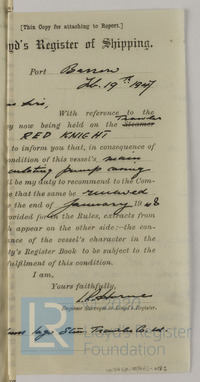 [This Copy for attaching to Report.]
yd's Register of Shipping.
Port Barrow
Feb. 19th 1947
With reference to the
Trawler
y now being held on the Steamer
RED KNIGHT
to inform you that, in consequence of
ondition of this vessel's main
culating pump casing
ll be my duty to recommend to the Com-
e that the same be renewed
e the end of January 1948
rovided for in the Rules, extracts from
h appear on the other side:—the con-
ance of the vessel's character in the
ty's Register Book to be subject to the
fulfilment of this condition.
I am,
Yours faithfully,
Engineer Surveyor to Lloyd's Register.
Steam Trawler Co. Ld.
LR
Lloyd's Register
Foundation